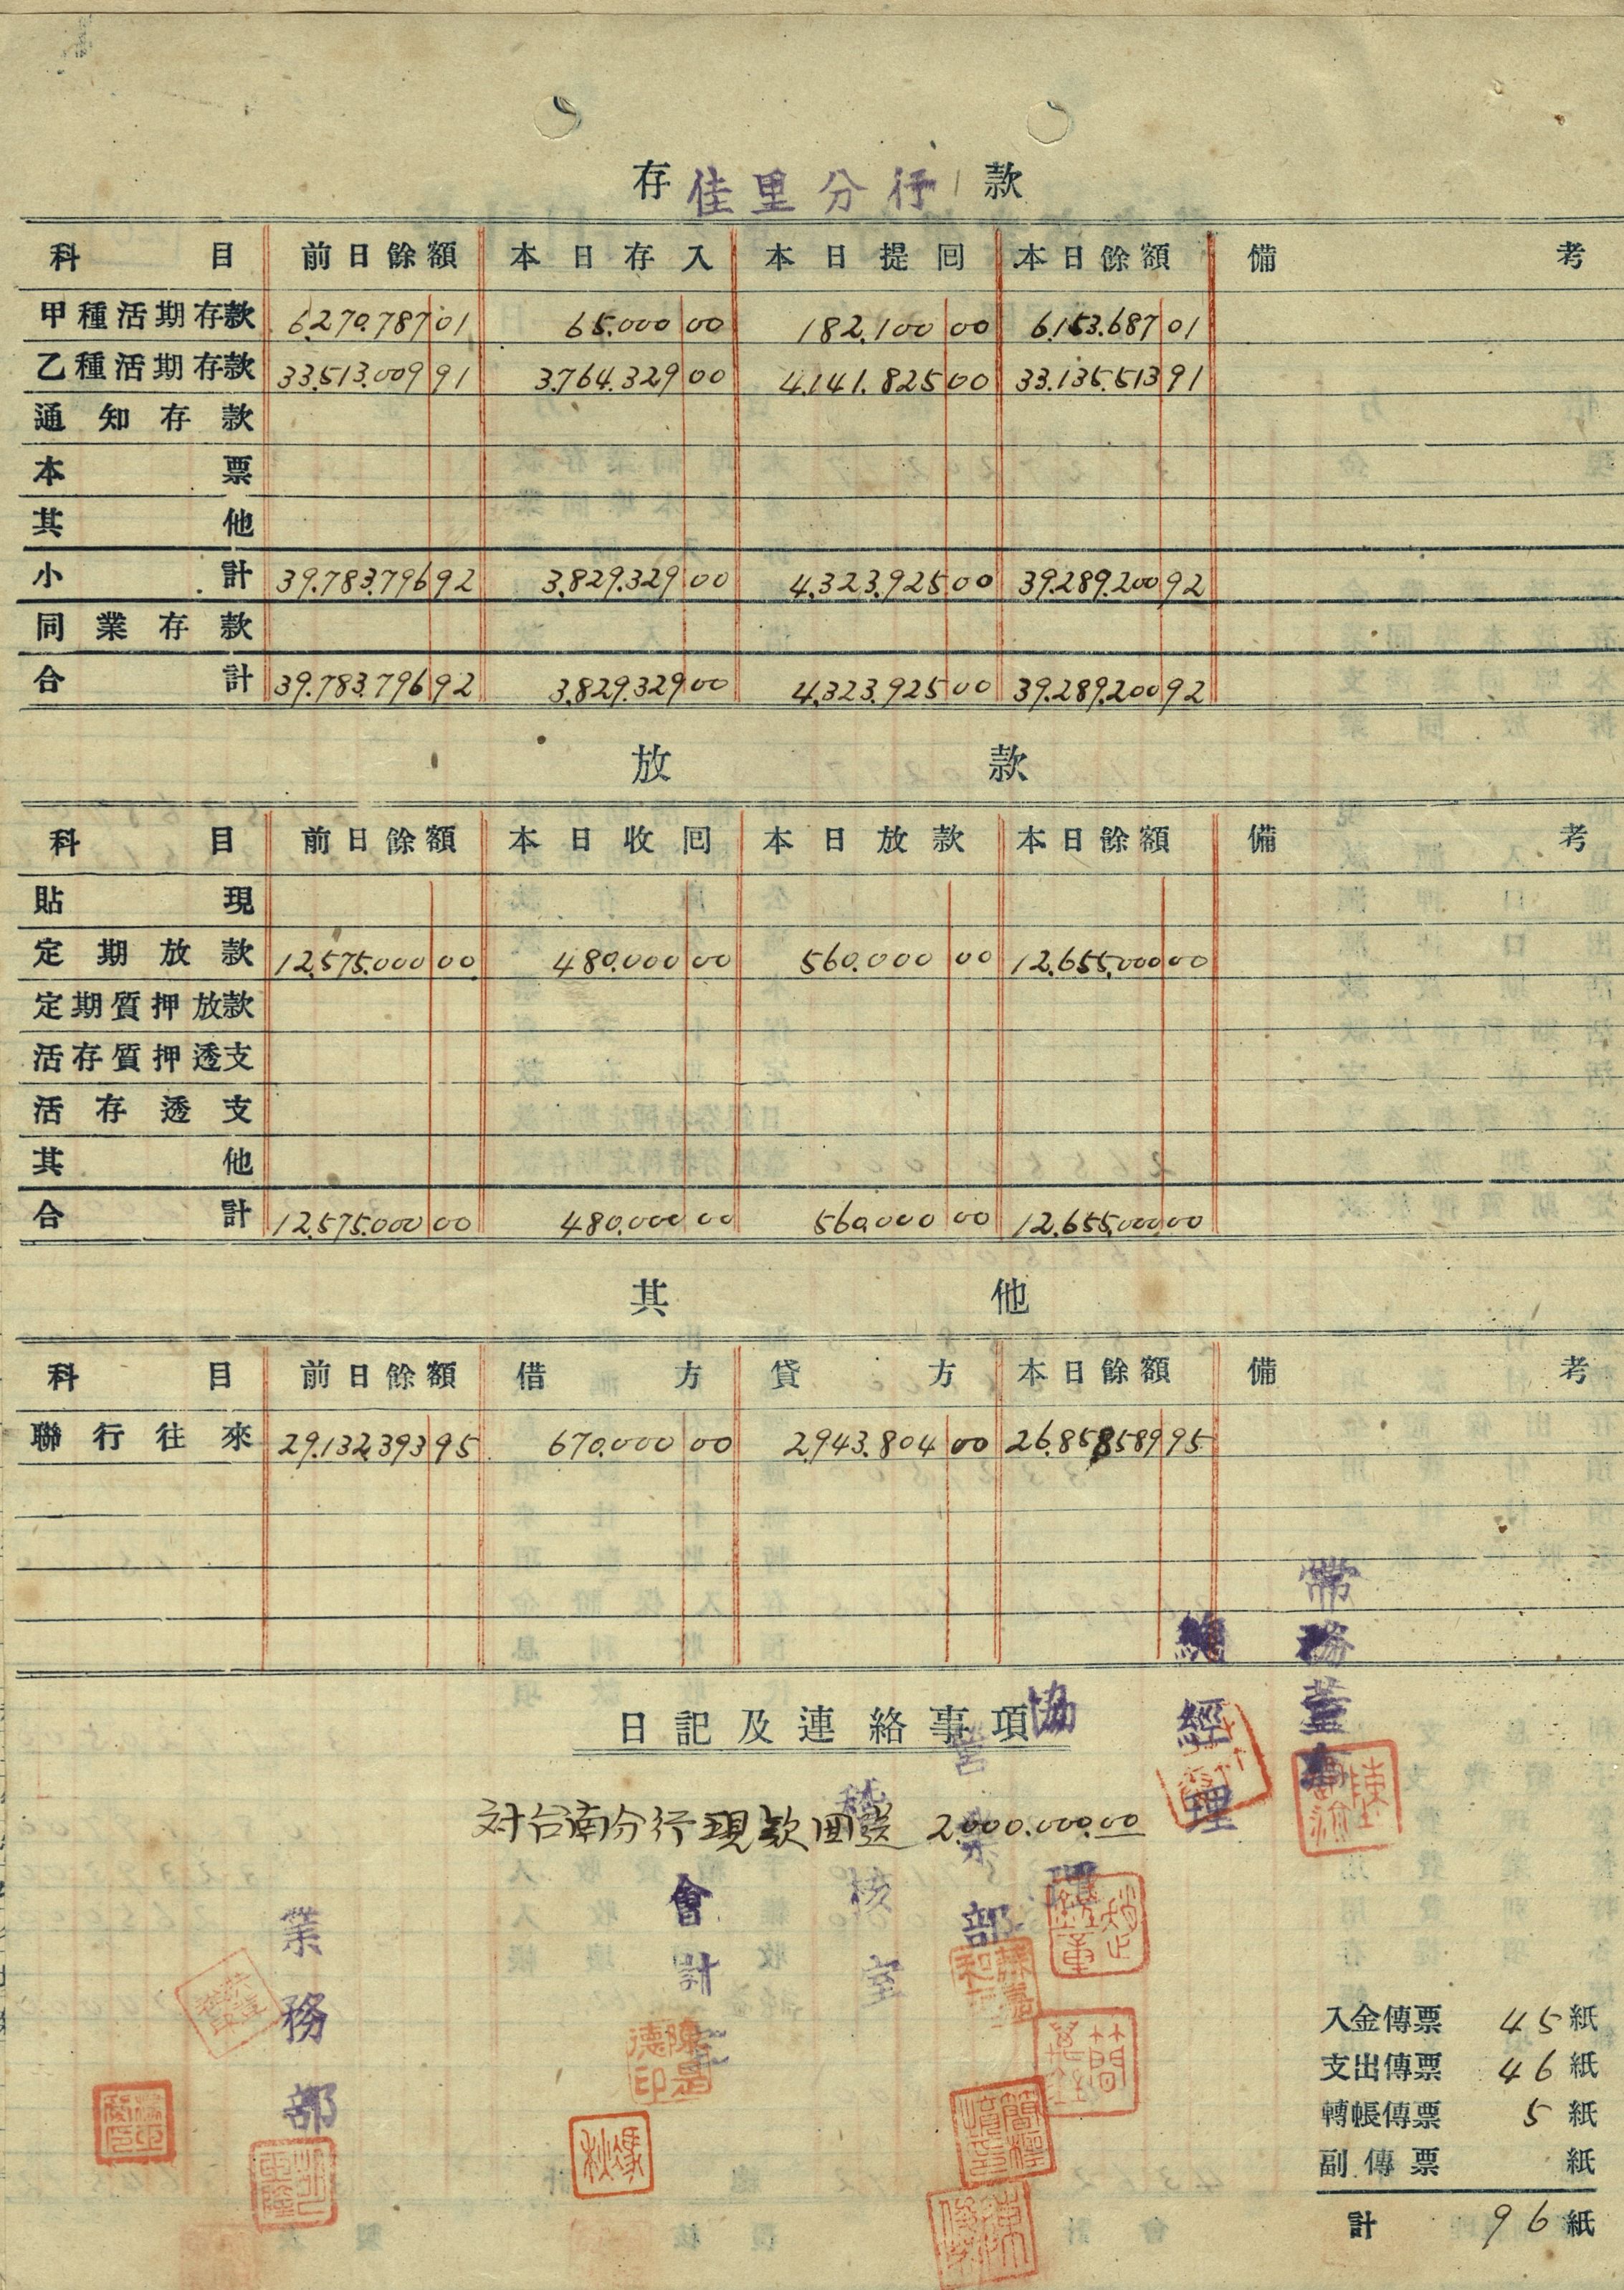 存 佳里分行 款
科目 前日餘額 本日存入 本日提回 本日餘額 備考
甲種活期存款 6,270,787 01 65,000 00 182,100 00 6,153,687 01
乙種活期存款 33,513,009 91 3,764,329 00 4,141,825 00 33,135,513 91
通知存款
本票
其他
小計 39,783,796 92 3,829,329 00 4,323,925 00 39,289,200 92
同業存款
合計 39,783,796 92 3,829,329 00 4,323,925 00 39,289,200 92
放款
科目 前日餘額 本日收回 本日放款 本日餘額 備考
貼現
定期放款 12,575,000 00 480,000 00 560,000 00 12,655,000 00
定期質押放款
活存質押透支
活存透支
其他
合計 12,575,000 00 480,000 00 560,000 00 12,655,000 00
其他
科目 前日餘額 借方 貸方 本日餘額 備考
聯行往來 29,132,393 95 670,000 00 2,943,804 00 26,858,589 95
日記及連絡事項
対台南分行現款回送 2,000,000.00
常務董事
總經理
協理
營業部
稽核室
會計室
業務部
陳是德印
馮秋
入金傳票 45紙
支出傳票 46紙
轉帳傳票 5紙
副傳票 紙
計 96紙